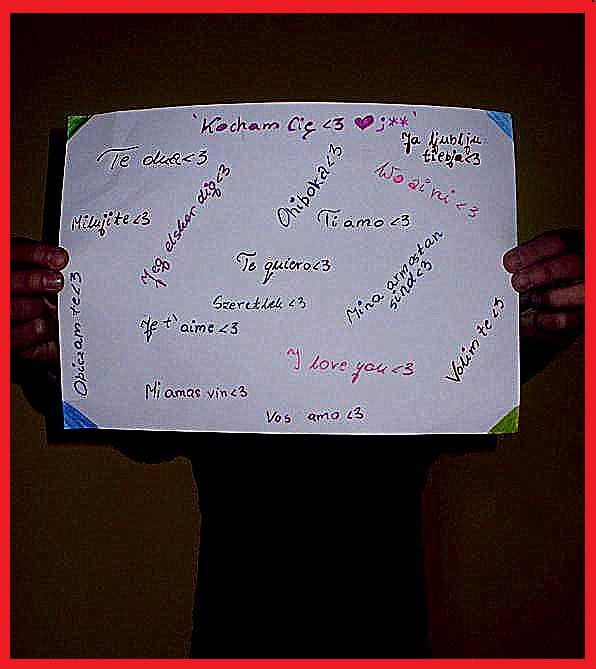 'Kocham Cię <3 ♥ ;**'
Ja ljublju
tiebja<3
Te dua<3
Wo ai ni <3
Jeg elsker dig<3
Ohiboka<3
Milujite<3
Ti amo <3
Te quiero<3
Mina armastan
sind<3
Szeretlek <3
Obicam te<3
Je t'aime <3
Volim te <3
I love you <3
Mi amas vin<3
Vos amo <3